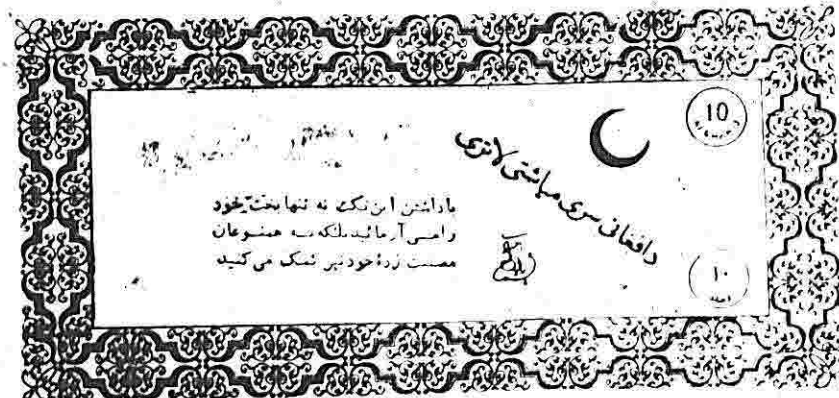 10
دافغانی سری میاشتی لاتری
باداشتن این تکت نه تنها بخت خود
را می آزمائید بلکه به همنوعان
مصیبت زدهٔ خود نیز کمک می کنید
۱۰